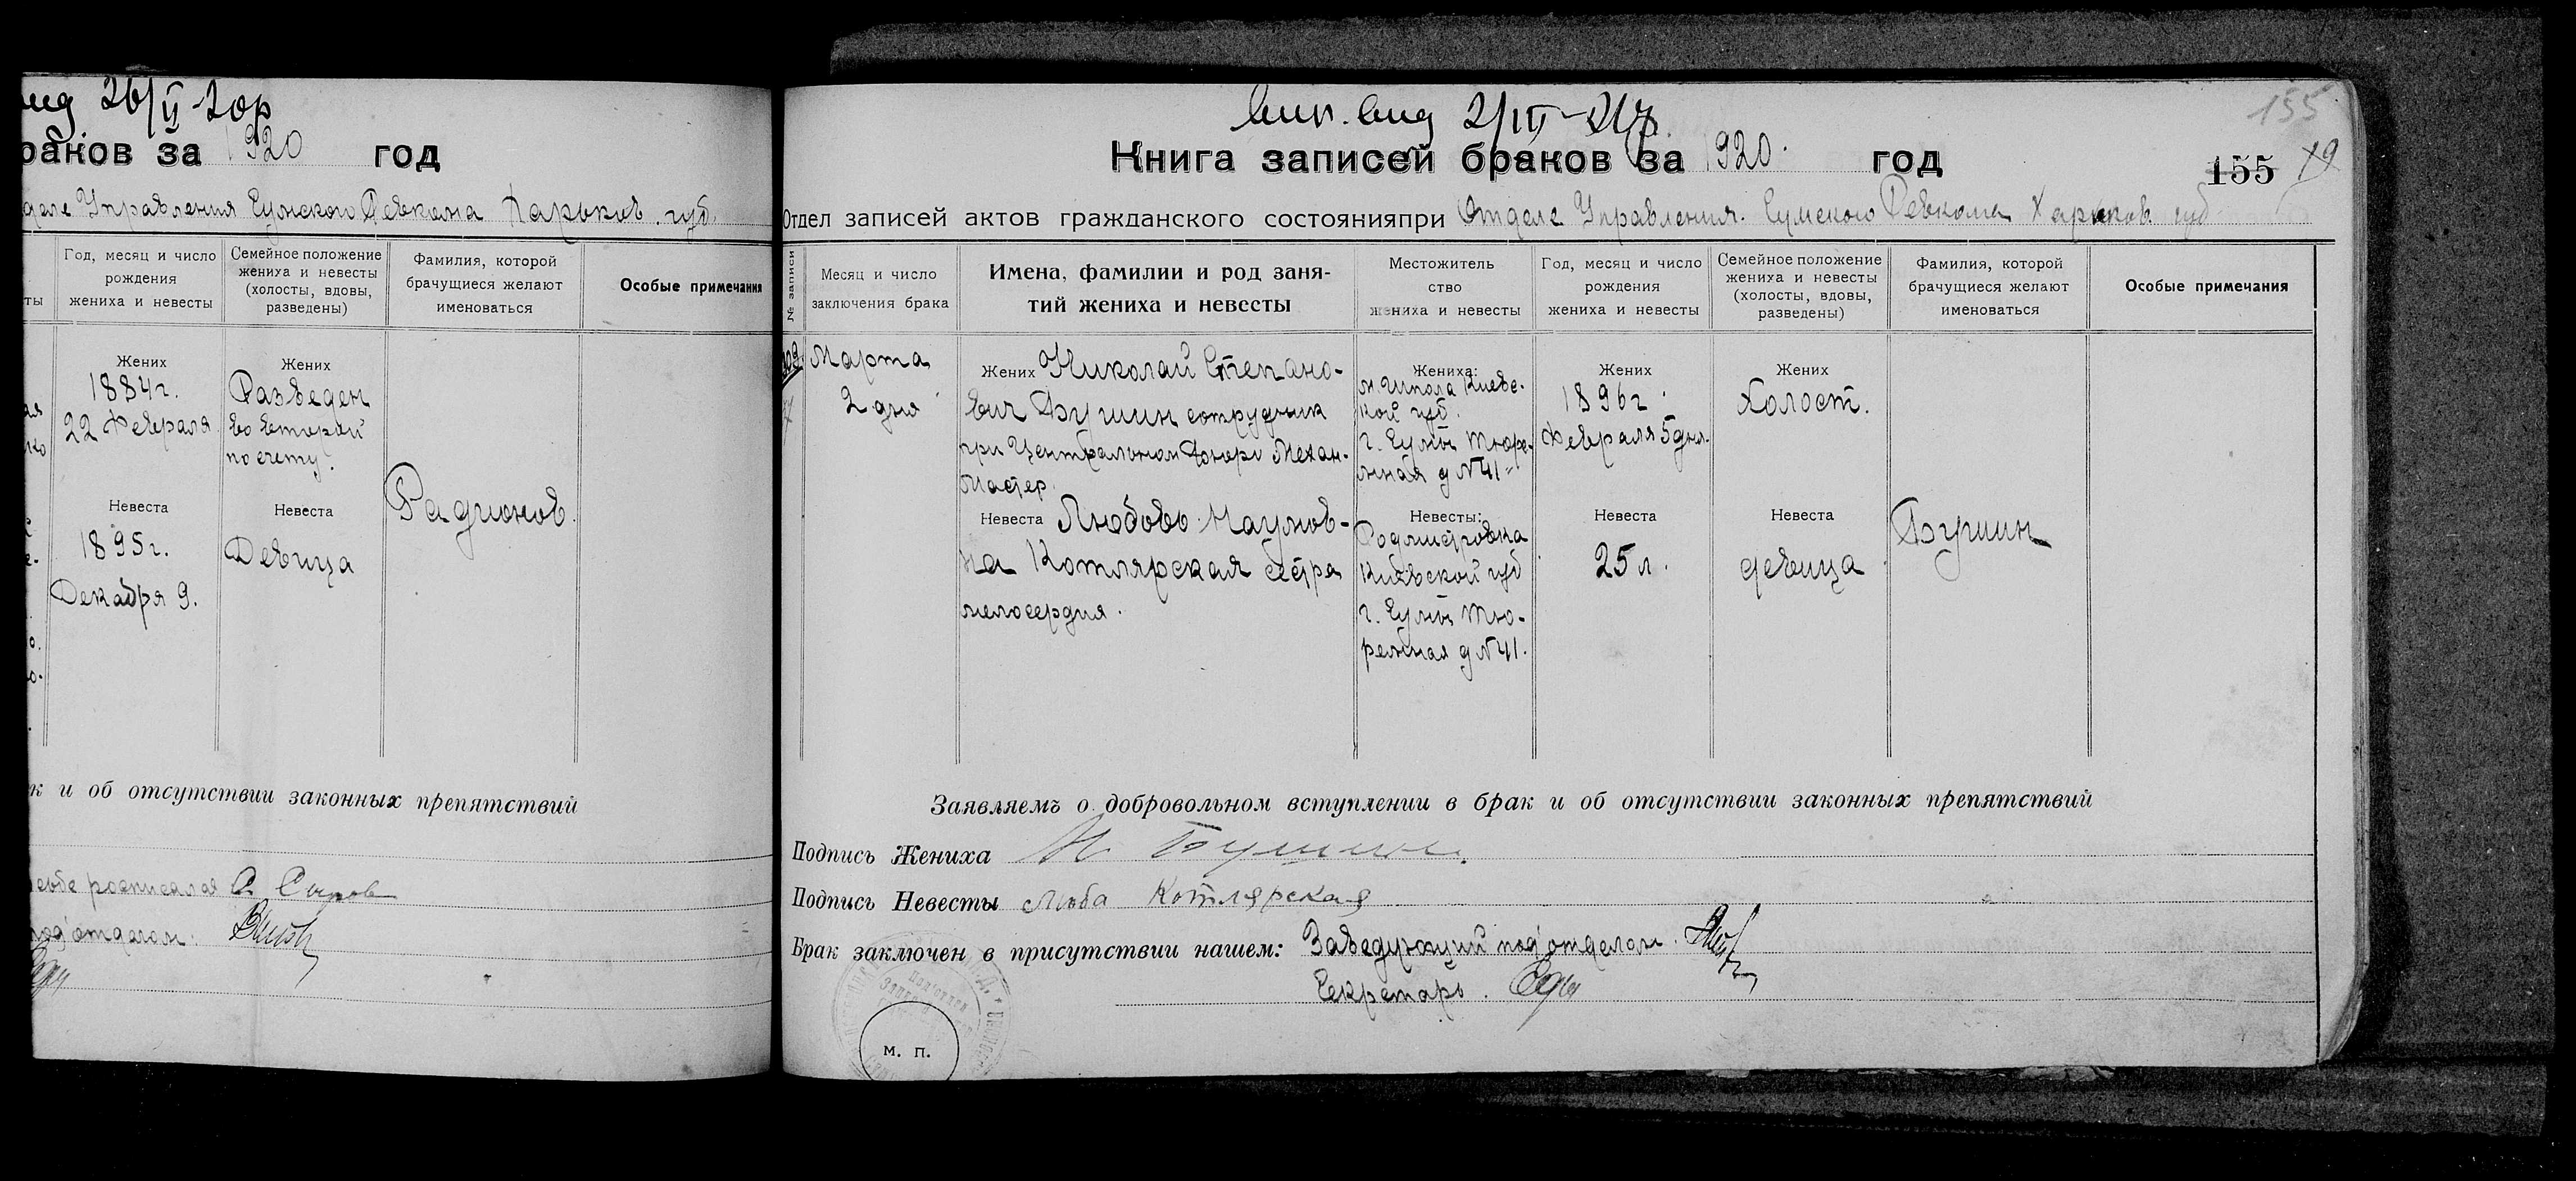 вид 26/II-20г
раков за 1920 год
деле Управления Сумского Ревкома Харьков. губ.
Год, месяц и число рождения жениха и невесты
Семейное положение жениха и невесты (холосты, вдовы, разведены)
Фамилия, которой брачущиеся желают именоваться
Особые примечания
Жених
1884г.
22 февраля
Жених
Разведен
во второй
по счету.
Невеста
1895г.
Декабря 9.
Невеста
Девица
Радионов.
к и об отсутствии законных препятствий
росписался
под'отделом.
вид 2/III
Книга записей браков за 1920. год
155
155
19
Отдел записей актов гражданского состоянияпри Отделе Управления. Сумского Ревкома Харьков. губ
№ записи
Месяц и число заключения брака
Имена, фамилии и род занятий жениха и невесты
Местожительство жениха и невесты
Год, месяц и число рождения жениха и невесты
Семейное положение жениха и невесты (холосты, вдовы, разведены)
Фамилия, которой брачущиеся желают именоваться
Особые примечания
Марта
2 дня
Жених Николай Степано-
вич Бушин сотрудник
при Центральном Бюро Механ.
Мастер.
Жениха:
м. Шпола Киевс-
кой губ.
г. Сумы Тюре-
мная д №41
Жених
1896г.
Февраля 5 дня.
Жених
Холост.
Невеста Любовь Наумов-
на Котлярская сестра
милосердия.
Невесты:
Родмистровка
Киевской губ
г. Сумы Тю-
ремная д №41.
Невеста
25 л.
Невеста
девица
Бушин
Заявляемъ о добровольном вступлении в брак и об отсутствии законных препятствий
Подпись Жениха Н Бушин.
Подпись Невесты Люба Котлярская
Брак заключен в присутствии нашем: Заведующий под'отделом.
Секретарь.
м. п.